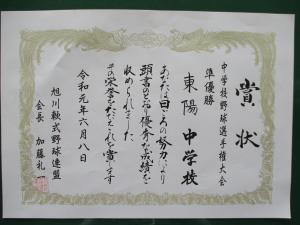 賞状
中学校野球選手権大会
準優勝
東陽中学校
あなたは日ごろの努力により
頭書のとおり優秀な成績を
収められました
その栄誉をたたえこれを賞します
令和元年六月八日
旭川軟式野球連盟
会長 加藤礼一